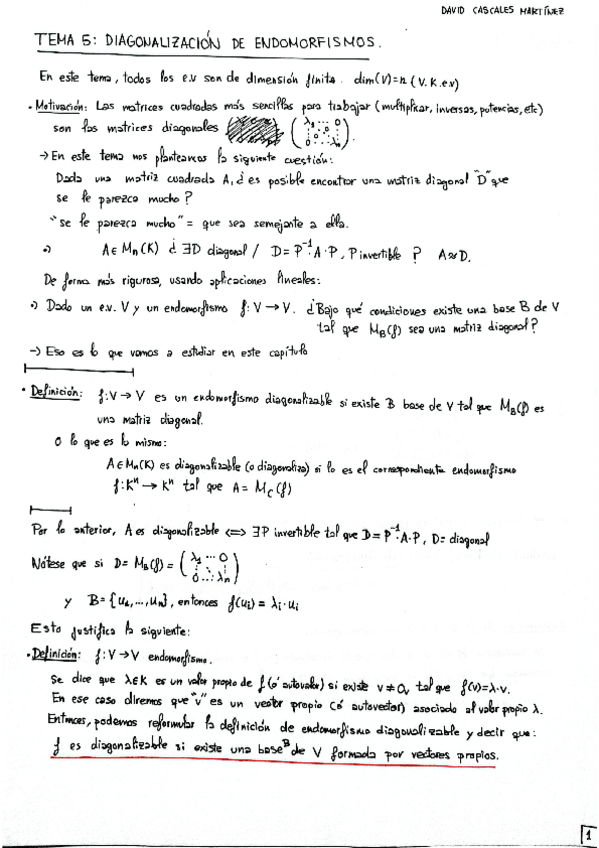 DAVID CASCALES MARTÍNEZ
TEMA 5: DIAGONALIZACIÓN DE ENDOMORFISMOS.
En este tema, todos los e.v son de dimensión finita. dim(V)=n (V. K. e.v)
• Motivación: Las matrices cuadradas más sencillas para trabajar (multiplicar, inversas, potencias, etc)
son las matrices diagonales (λ₁ ... 0 / 0 ... λₙ).
→ En este tema nos planteamos la siguiente cuestión:
Dada una matriz cuadrada A, ¿es posible encontrar una matriz diagonal "D" que
se le parezca mucho?
"se le parezca mucho" = que sea semejante a ella.
A∈Mn(K) ¿ ∃D diagonal / D=P⁻¹·A·P, P invertible ? A≈D.
De forma más rigurosa, usando aplicaciones lineales:
Dado un e.v. V y un endomorfismo f: V→V. ¿Bajo qué condiciones existe una base B de V
tal que M_B(f) sea una matriz diagonal?
→ Eso es lo que vamos a estudiar en este capítulo
• Definición: f:V→V es un endomorfismo diagonalizable si existe B base de V tal que M_B(f) es
una matriz diagonal.
O lo que es lo mismo:
A∈Mn(K) es diagonalizable (o diagonaliza) si lo es el correspondiente endomorfismo
f:Kⁿ→Kⁿ tal que A = M_C(f)
Por lo anterior, A es diagonalizable ⟺ ∃P invertible tal que D=P⁻¹·A·P, D=diagonal
Nótese que si D=M_B(f)=(λ₁ ... 0 / 0 ... λₙ)
y B={u₁,...,uₙ}, entonces f(uᵢ)=λᵢ·uᵢ
Esto justifica la siguiente:
• Definición: f:V→V endomorfismo.
Se dice que λ∈K es un valor propio de f (ó autovalor) si existe v≠0, tal que f(v)=λ·v.
En ese caso diremos que "v" es un vector propio (ó autovector) asociado al valor propio λ.
Entonces, podemos reformular la definición de endomorfismo diagonalizable y decir que:
f es diagonalizable si existe una base B de V formada por vectores propios.
1